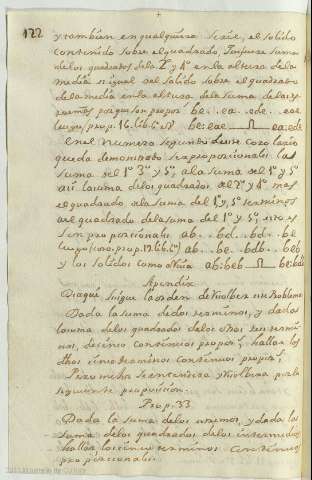 122
y tambien en qualquiera serie, el solido
contenido sobre el quadrado, suma
de los quadrados del 2º y 4º en la altura de la
media es igual del solido sobre el quadrado
de la media en la altura de la suma de las
porque son propor. be. ea. ede. eae
luego, prop. 16. lib. 6º be: eae ea: ede
En el numero segundo deste corolario
queda demonstrado ser proporcionales la
suma del 1º 3º y 5º, a la suma del 1º y 5º
asi la suma de los quadrados del 2º y 4º mas
el quadrado de la suma del 1º y 5º terminos
al quadrado de la suma del 1º y 5º, esto es
son proporcionales ab. bd. bdr. be
luego (por prop. 17. lib. 6º) ab. be. bdb. beb
y los solidos como ab: beb be: bdb
Apendix
De aqui sigue la orden de resolver este Problema
Dada la suma de dos terminos, y dada
la suma de los quadrados de los otros tres termi
nos, de cinco continuos propor. hallar los
dhos cinco terminos continuos propor.
Pero mejor se entendera y resolvera por la
siguiente proposicion
Prop. 33.
Dada la suma de los extremos, y dada la
suma de los quadrados de los intermedios
hallar los cinco terminos continuos
proporcionales